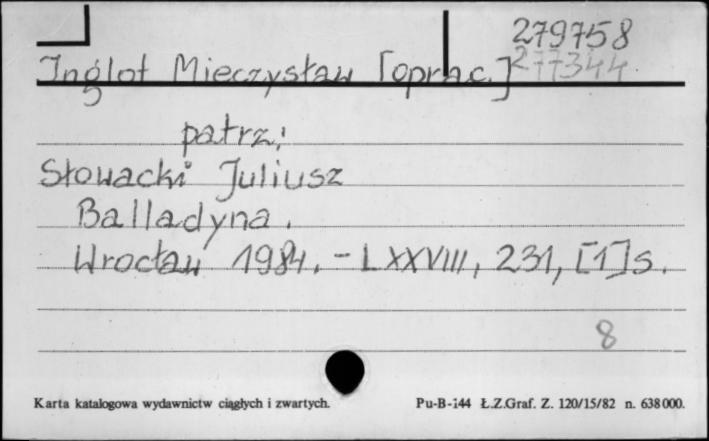 279758
277344
Inglot Mieczysław [oprac.]
patrz:
Słowacki Juliusz
Balladyna.
Wrocław 1984. - LXXVIII, 231, [1]s.
8
Karta katalogowa wydawnictw ciągłych i zwartych. Pu-B-144 Ł.Z.Graf. Z. 120/15/82 n. 638000.